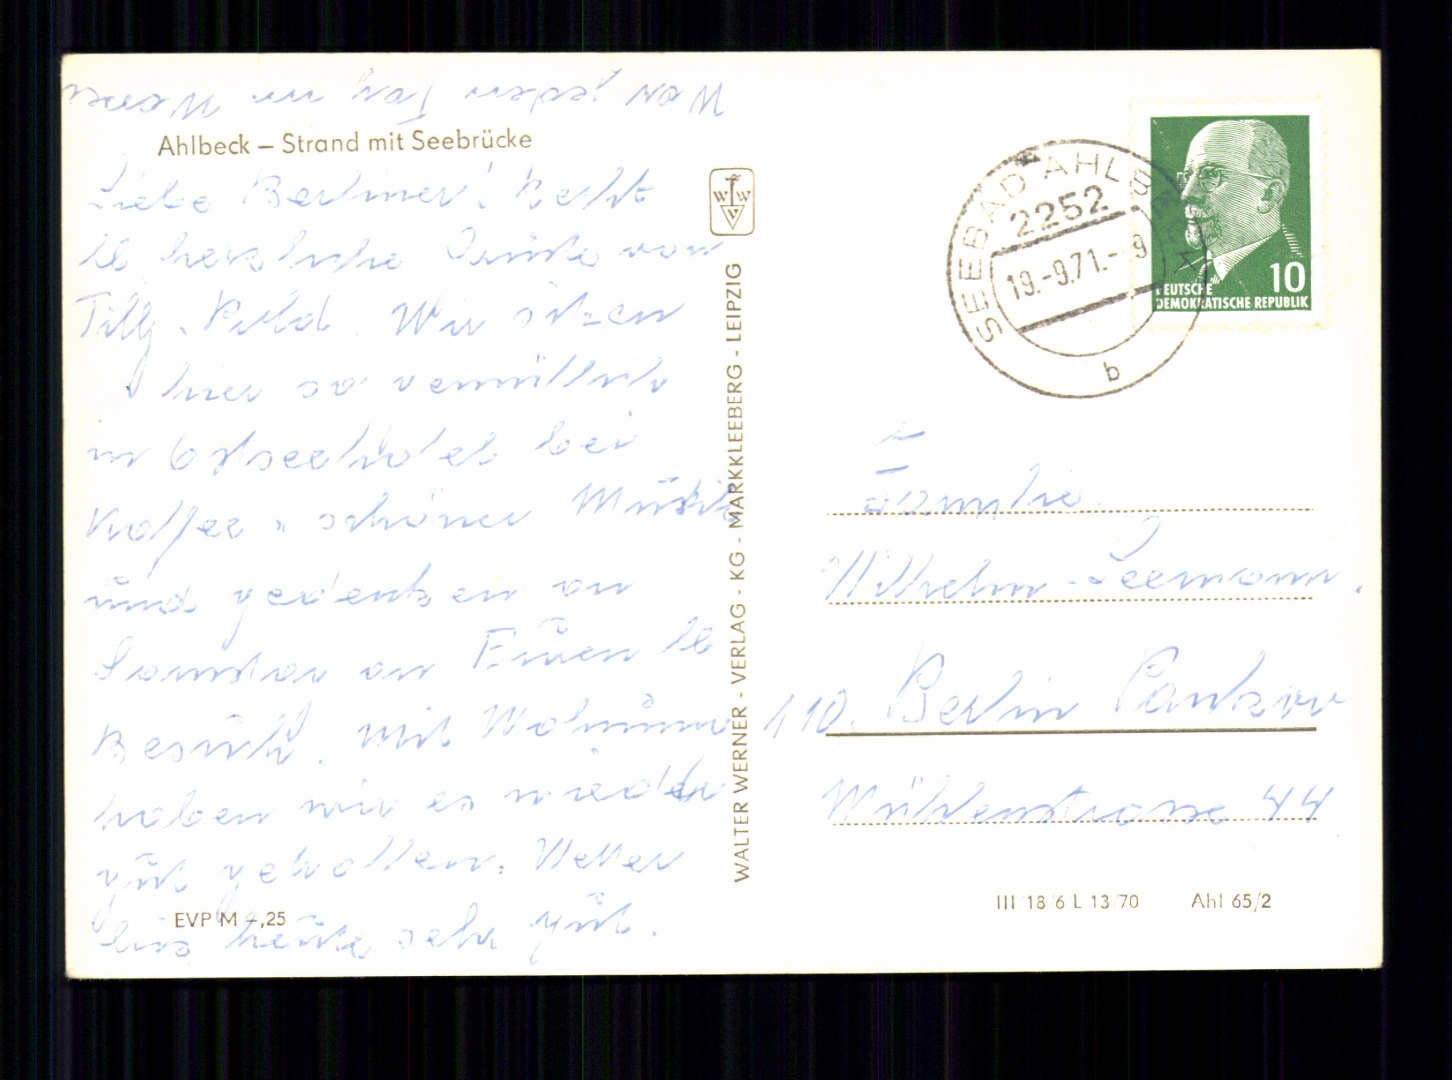 Ahlbeck – Strand mit Seebrücke
Liebe Berliner! Recht
lb herzliche Grüße von
Tilly
Wir sitzen
hier so vermütlich
im Ostseehotel bei
Kaffee u schöner Musik
und gedenken an
an Euren lb
Besuch. Mit Wohnung
haben wir es wieder
gut getroffen. Wetter
bis heute sehr gut.
War jeden Tag im Wasser
EVP M –,25
W W W
WALTER WERNER - VERLAG - KG - MARKKLEEBERG - LEIPZIG
SEEBAD AHLBECK
2252
19.-9.71.-9
b
10
DEUTSCHE
DEMOKRATISCHE REPUBLIK
Familie
Wilhelm Seemann.
110. Berlin Pankow
Mühlenstrasse 44
III 18 6 L 13 70 Ahl 65/2